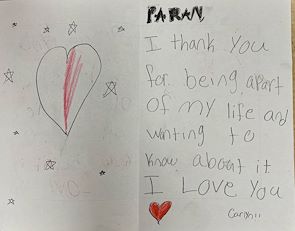 PARAN
I thank you
for being apart
of my life and
wanting to
know about it
I Love you